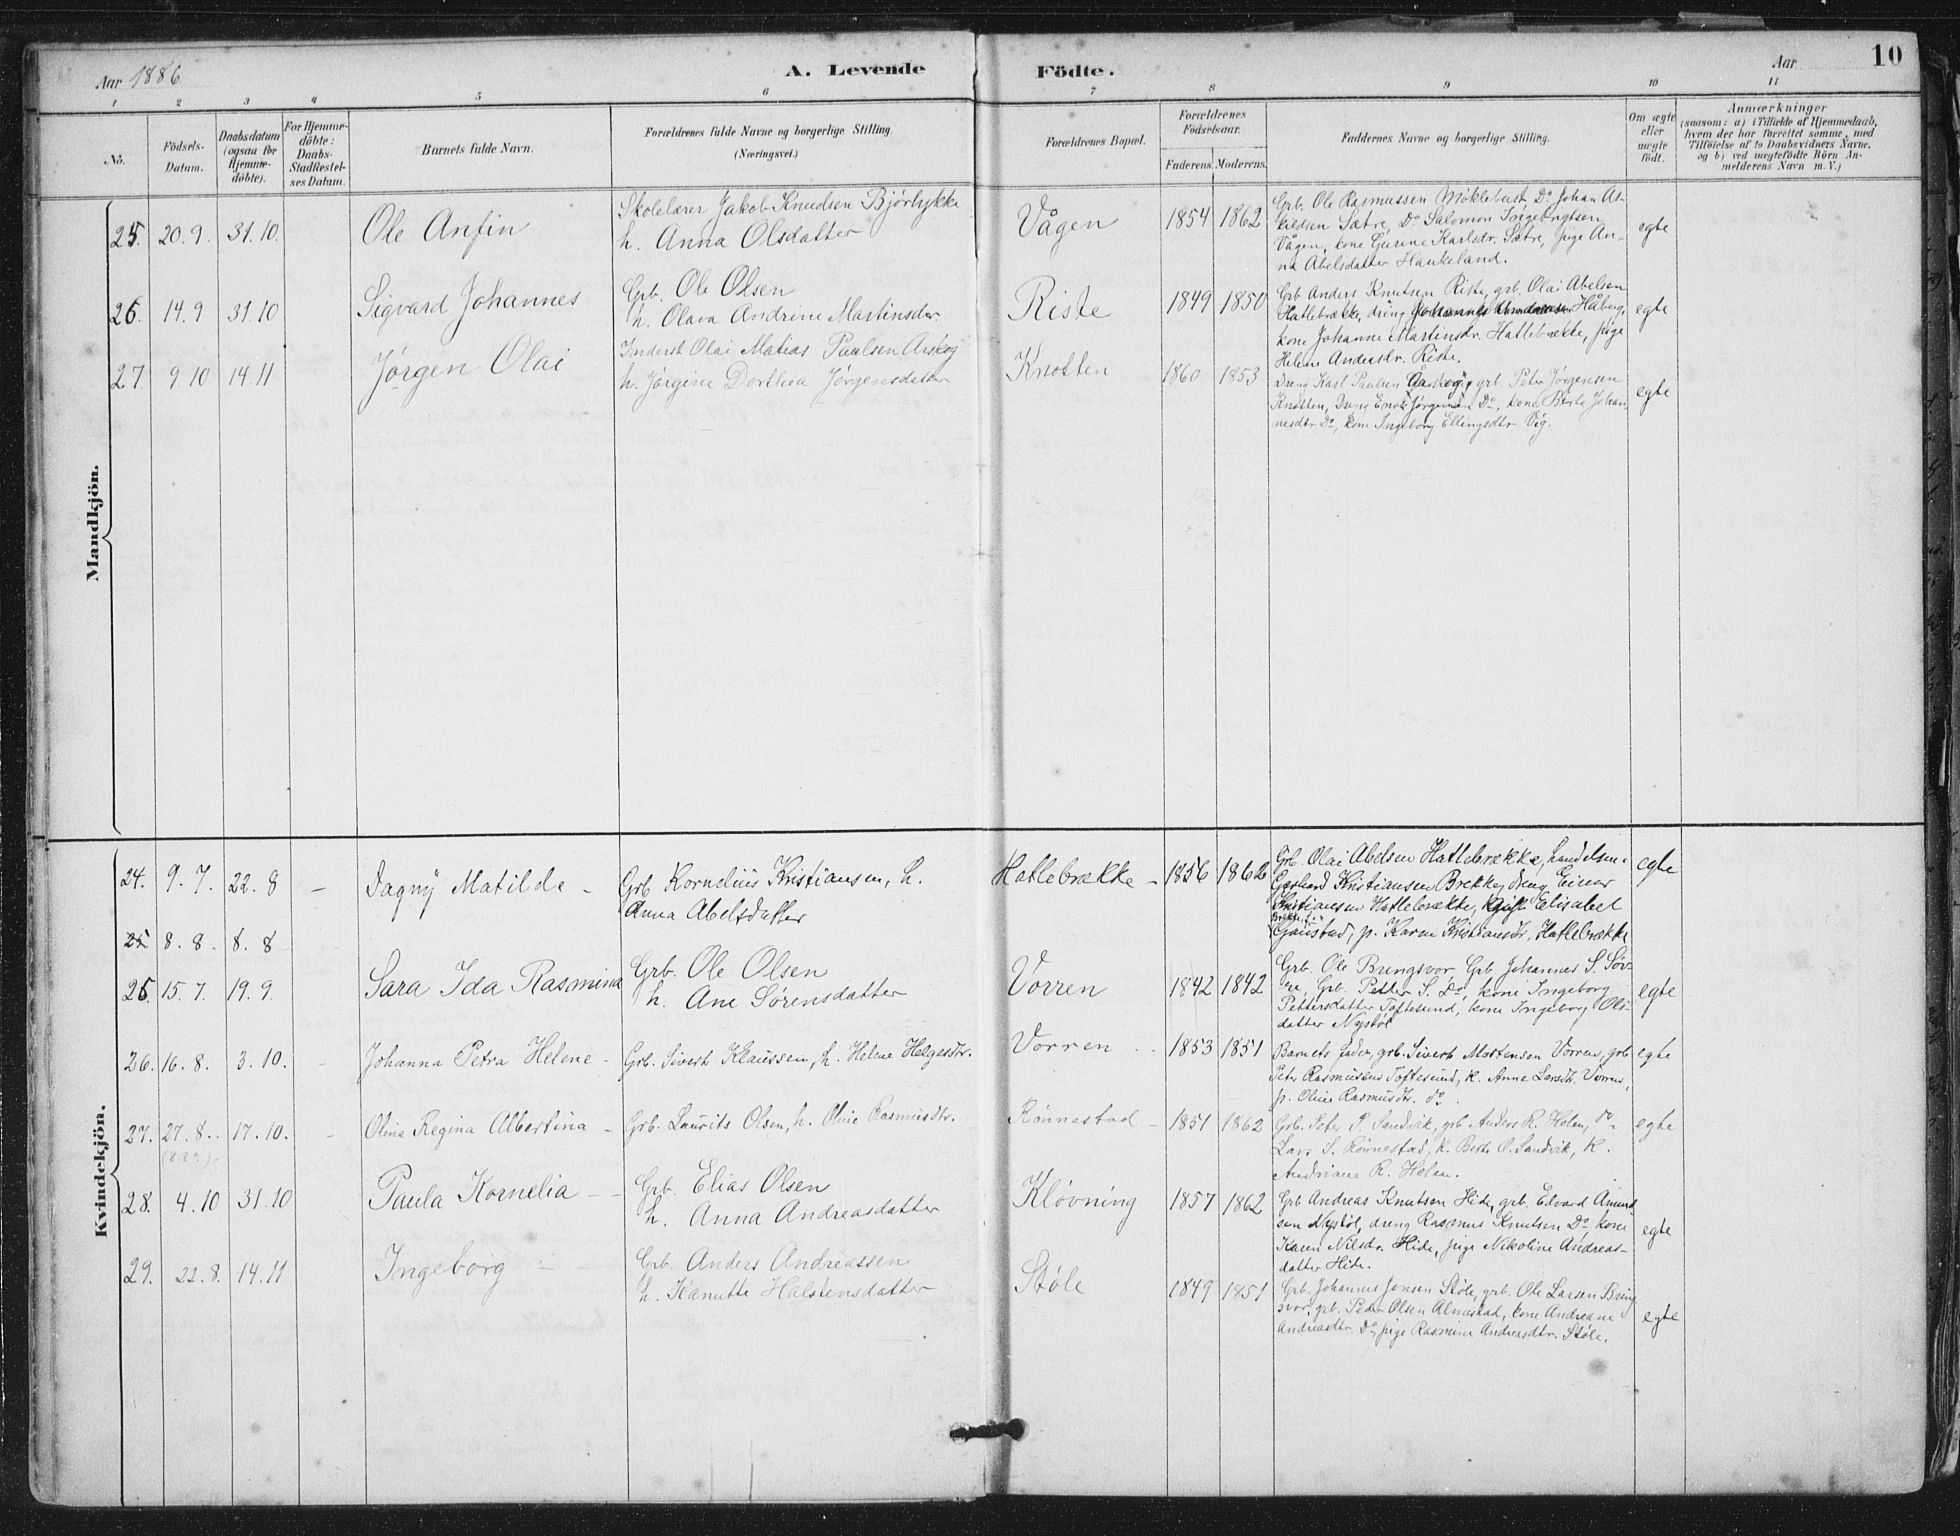 Aar 1886
A. Levende Födte.
Aar
10
1 2 3 4 5 6 7 8 9 10 11
No.
Födsels-Datum.
Daabsdatum (ogsaa for Hjemme-döbte).
For Hjemme-döbte: Daabs-Stadfestel-ses Datum.
Barnets fulde Navn.
Forældrenes fulde Navne og borgerlige Stilling. (Næringsvei.)
Forældrenes Bopæl.
Forældrenes Födselsaar.
Faderens. Moderens.
Faddernes Navne og borgerlige Stilling.
Om ægte eller uægte födt.
Anmærkninger
(saasom: a) i Tilfælde af Hjemmedaab, hvem der har forrettet samme, med Tilföielse af to Daabsvidners Navne, og b) ved uegtefödte Börn An-melderens Navn m. V.)
Mandkjön.
25. 20.9. 31.10. Ole Anfin
Skolelærer Jakob Knudsen Bjørlykke
h. Anna Olsdatter
Vågen 1854 1862
Grb. Ole Rasmussen Möklebust, Do Johan As-
kildsen Sætre, Do Salomon Ingebrigtsen
Vågen, kone Gurine Karlsdr. Sætre, pige An-
na Abelsdatter Haukeland.
egte
26. 14.9 31.10 Sigvard Johannes
Grb. Ole Olsen
h. Olava Andrine Martinsdr
Riste 1849 1850
Grb Anders Knutsen Riste, grb. Olai Abelsen
Hatlebrække, dreng Johannes Håberg,
kone Johanne Martinsdr. Hatlebrække, pige
Helene Andersdr. Riste.
egte
27. 9 10 14.11 Jørgen Olai
Inderst Olai Matias Paulsen Arskog
h. Jørgine Dorthea Jørgensdatter
Knotten 1860 1853
Dreng Karl Paulsen Årskog, grb. Peter Jørgensen
Knotten, Dreng Enok Jørgensen Do, kone Berte Johan-
nesdtr. Do, kone Ingeborg Ellingsdtr. Vig.
egte
Kvindekjön.
24. 9.7. 22.8 – Dagny Matilde –
Grb Kornelius Kristiansen, h.
Anna Abelsdatter
Hatlebrække – 1856 1862
Grb. Olai Abelsen Hatlebrække, handelsm.
Gerhard Kristiansen Brekke, dreng Einar
Kristiansen Hatlebrække, Elisabet
Gaustad, p. Karen Kristiansdr. Hatlebrække
egte
25 8.8. 8.8
25. 15.7. 19.9. Sara Ida Rasmina
Grb. Ole Olsen
h. Ane Sørensdatter
Vorren 1842 1842
Grb. Ole Bringsvor, Grb Johannes S. Söv-
re, Grb. Petter S. Do, kone Ingeborg
Pettersdatter Toftesund, kone Ingeborg Ols-
datter Nystöl
egte
26. 16.8. 3.10. Johanna Petra Helene –
Grb. Sivert Klaussen, h. Helene Helgesdtr.
Vorren 1853 1851
Barnets fader, grb. Sivert Mortensen Vorren, grb
Peter Rasmussen Toftesund, k. Anne Larsdr. Vorren,
p. Oline Rasmusdr. do.
egte
27. 27.8. 17.10. – Oline Regina Albertina –
Grb. Laurits Olsen, h. Oline Rasmusdtr.
Rönnestad – 1851 1862
Grb. Peter P. Sandvik, grb Anders R. Holen, do
Lars S. Rönnestad, k. Berte O. Sandvik, k.
Andriane R. Holen.
egte
28. 4.10 31.10 Paula Kornelia – –
Grb. Elias Olsen
h. Anna Andreasdatter
Kløvning 1857 1862
Grb Andreas Knutsen Hide, grb. Edvard Amund-
sen Nystöl, dreng Rasmus Knutsen Do, kone
Karen Nilsdr. Hide, pige Nikoline Andreas-
datter Hide.
egte
29. 22.8. 14.11 Ingeborg –
Grb. Anders Andreassen
h. Kanutte Halstensdatter
Støle 1849 1851
Grb. Johannes Jonsen Støle, grb. Ole Larsen Bring
svor, grb. Peder Olsen Almestad, kone Andreane
Andreasdtr. Do, pige Rasmine Andreasdtr. Støle.
egte